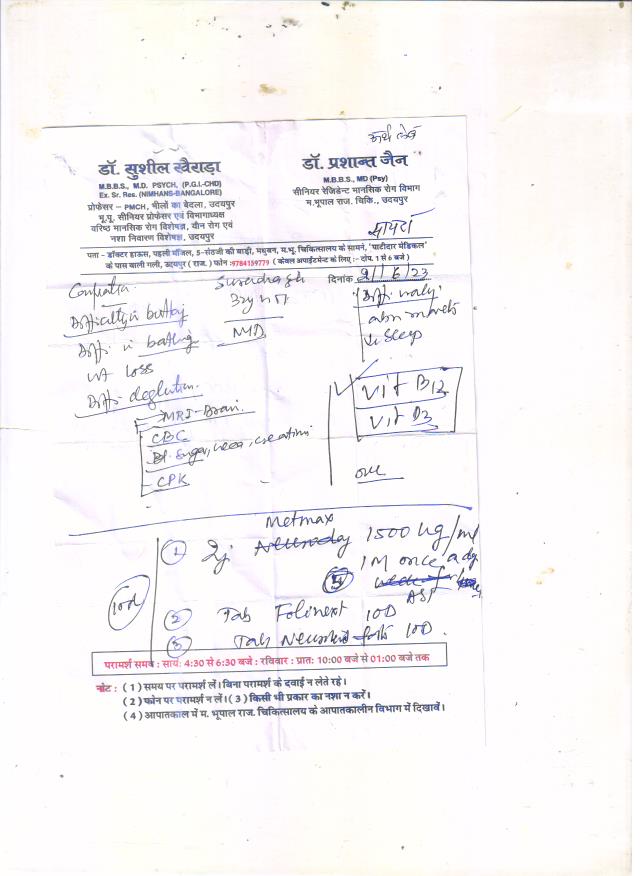 डॉ. सुशील खैराड़ा
M.B.B.S., M.D. PSYCH, (P.G.I.-CHD)
Ex. Sr. Res. (NIMHANS-BANGALORE)
प्रोफेसर – PMCH, भीलों का बेदला, उदयपुर
भू.पू. सीनियर प्रोफेसर एवं विभागाध्यक्ष
वरिष्ठ मानसिक रोग विशेषज्ञ, यौन रोग एवं
नशा निवारण विशेषज्ञ, उदयपुर
डॉ. प्रशान्त जैन
M.B.B.S., MD (Psy)
सीनियर रेजिडेन्ट मानसिक रोग विभाग
म.भूपाल राज. चिकि., उदयपुर
पता - डॉक्टर हाऊस, पहली मंजिल, 5-सेठजी की बाड़ी, मधुबन, म.भू. चिकित्सालय के सामने, 'पाटीदार मेडिकल'
के पास वाली गली, उदयपुर ( राज.) फोन :9784159779 ( केवल अपॉईंटमेंट के लिए :- दोप. 1 से 6 बजे )
दिनांक 9/6/23
Difficulty in
Diffi. in bathing
wt loss
Diffi. deglution
MD
↓ Sleep
MRI-Brain
CBC
Bl. Sugar, urea, creatinin
CPK
Vit B12
Vit D3
Metmax
1 Inj 1500 ug/ml
1M once a day
AST
10d
2 Tab Folinext 10D
3 Tab forte 10D
परामर्श समय : सायं: 4:30 से 6:30 बजे : रविवार : प्रात: 10:00 बजे से 01:00 बजे तक
नोट : ( 1 ) समय पर परामर्श लें। बिना परामर्श के दवाई न लेते रहे।
( 2 ) फोन पर परामर्श न लें। ( 3 ) किसी भी प्रकार का नशा न करें।
( 4 ) आपातकाल में म. भूपाल राज. चिकित्सालय के आपातकालीन विभाग में दिखावें।